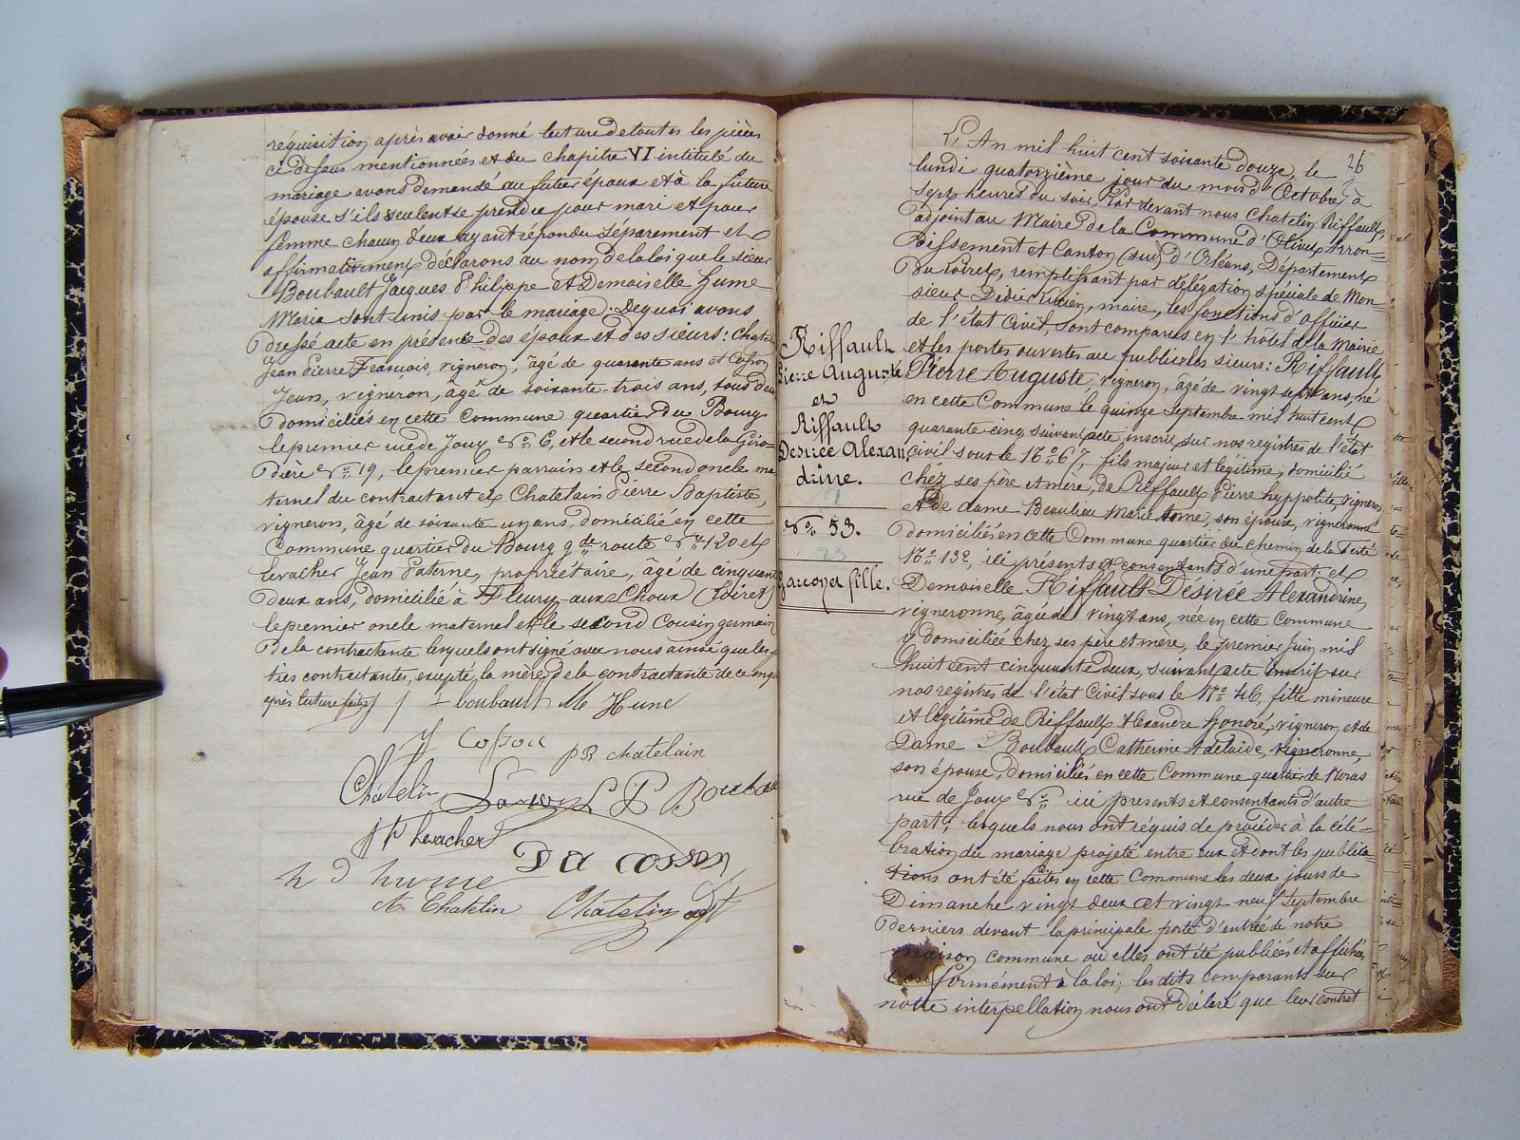 réquisition après avoir donné lecture de toutes les pièces
ci dessus mentionnées et du chapitre VI intitulé du
mariage avons demandé au futur époux et à la future
épouse s'ils veulent se prendre pour mari et pour
femme chacun d'eux ayant répondu séparément et
affirmativement déclarons au nom de la loi que le sieur
Boubault Jacques Philippe et Demoiselle Hume
Maria sont unis par le mariage. De quoi avons
dressé acte en présence des époux et des sieurs : Chatelin
Jean Pierre François, vigneron, âgé de quarante ans et Cosson
Jean, vigneron, âgé de soixante-trois ans, tous deux
domiciliés en cette Commune quartier du Bourg
le premier rue de Jouy No 6, et le second rue de la Giro=
dière No 19, le premier parrain et le second oncle ma
ternel du contractant et Chatelain Pierre Baptiste,
vigneron, âgé de soixante un ans, domicilié en cette
Commune quartier du Bourg gde route No 120 et
Levacher Jean Paterne, propriétaire, âgé de cinquante
deux ans, domicilié à Fleury-aux-Choux (Loiret)
le premier oncle maternel et le second Cousin germain
de la contractante lesquels ont signé avec nous ainsi que les par
ties contractantes, excepté la mère de la contractante de ce
après lecture faite
boubault M Hume
Cosson
pB chatelain
Chatelin
L P Boubault
J P Levacher
Da Cosson
h d hume
A. Chatelin
Chatelin adjt
26
L'An mil huit cent soixante douze, le
lundi quatorzième jour du mois d'Octobre à
sept heures du soir Par devant nous Chatelin Riffault,
adjoint au Maire de la Commune d'Olivet Arron=
dissement et Canton (sud) d'Orléans, Département
du Loiret, remplissant par délégation spéciale de Mon=
sieur Didier Lucien, maire, les fonctions d'officier
de l'état Civil, sont comparus en l'hôtel de la Mairie
et les portes ouvertes au public les sieurs : Riffault
Pierre Auguste, vigneron, âgé de vingt sept ans, né
en cette Commune le quinze Septembre mil huit cent
quarante cinq suivant acte inscrit sur nos registres de l'état
Civil sous le No 67, fils majeur et légitime, domicilié
chez ses père et mère, de Riffault Pierre hyppolite, vigneron
et de dame Beaulieu Marie Anne, son épouse, vigneronne
domiciliés en cette Commune quartier du chemin de la Ferté
No 132, ici présents et consentants d'une part, et
Demoiselle Riffault Désirée Alexandrine,
vigneronne, âgée de vingt ans, née en cette Commune
y domiciliée chez ses père et mère, le premier Juin mil
huit cent cinquante deux, suivant acte inscrit sur
nos registres de l'état Civil sous le No 46, fille mineure
et légitime de Riffault Alexandre honoré, vigneron et de
Dame Boubault Catherine Adélaïde, vigneronne,
son épouse, domiciliés en cette Commune quartier de
rue de Jouy No ici présents et consentants d'autre
part; lesquels nous ont requis de procéder à la célé=
bration du mariage projeté entre eux et dont les publica=
tions ont été faites en cette Commune les deux jours de
Dimanche vingt deux et vingt neuf Septembre
derniers devant la principale porte d'entrée de notre
maison commune où elles ont été publiées et affichées
conformément à la loi; les dits comparants sur
notre interpellation nous ont déclaré que leur contrat
Riffault
Pierre Auguste
et
Riffault
Désirée Alexan
drine.
No 53.
Garçon et fille.